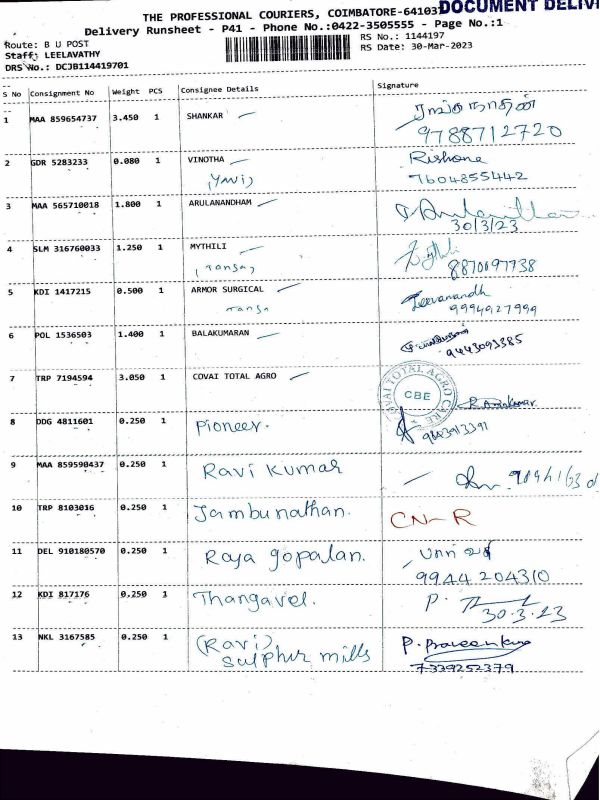 DOCUMENT DELIV
THE PROFESSIONAL COURIERS, COIMBATORE-64103
Delivery Runsheet - P41 - Phone No.:0422-3505555 - Page No.:1
Route: B U POST
RS No.: 1144197
Staff: LEELAVATHY
RS Date: 30-Mar-2023
DRS No.: DCJB114419701
S No Consignment No Weight PCS Consignee Details Signature
1 MAA 859654737 3.450 1 SHANKAR ரங்கநாதன்
9788712720
2 GDR 5283233 0.080 1 VINOTHA Rishone
7604855442
3 MAA 565710018 1.800 1 ARULANANDHAM
30/3/23
4 SLM 316760033 1.250 1 MYTHILI
8870197738
5 KDI 1417215 0.500 1 ARMOR SURGICAL Jeevanandh
9994927999
6 POL 1536503 1.400 1 BALAKUMARAN
9443093385
7 TRP 7194594 3.050 1 COVAI TOTAL AGRO
COVAI TOTAL AGRO CARE
CBE
8 DDG 4811601 0.250 1 Pioneer.
9 MAA 859590437 0.250 1 Ravi Kumar
10 TRP 8103016 0.250 1 Jambunathan. CN-R
11 DEL 910180570 0.250 1 Raja gopalan.
9944 204310
12 KDI 817176 0.250 1 Thangavel. P.
30.3.23
13 NKL 3167585 0.250 1 (Ravi) P. Praveenkumar
Sulphur mills
7339252379